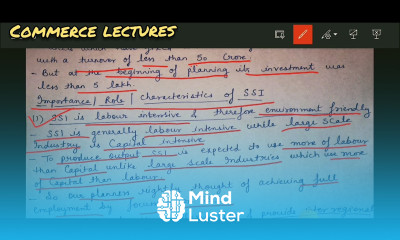 COMMERCE LECTURES
with a turnover of less than 50 crore.
- But at the beginning of planning its investment was
less than 5 lakh.
Importance / Role / Characteristics of SSI
(1) SSI is labour intensive & therefore environment friendly
SSI is generally labour intensive while large scale
Industry is Capital intensive
- To produce output SSI is expected to use more of labour
than Capital unlike large scale Industries which use more
of Capital than labour.
- So our planners rightly thought of achieving full
employment by
Mind
Luster
provide inter-regional